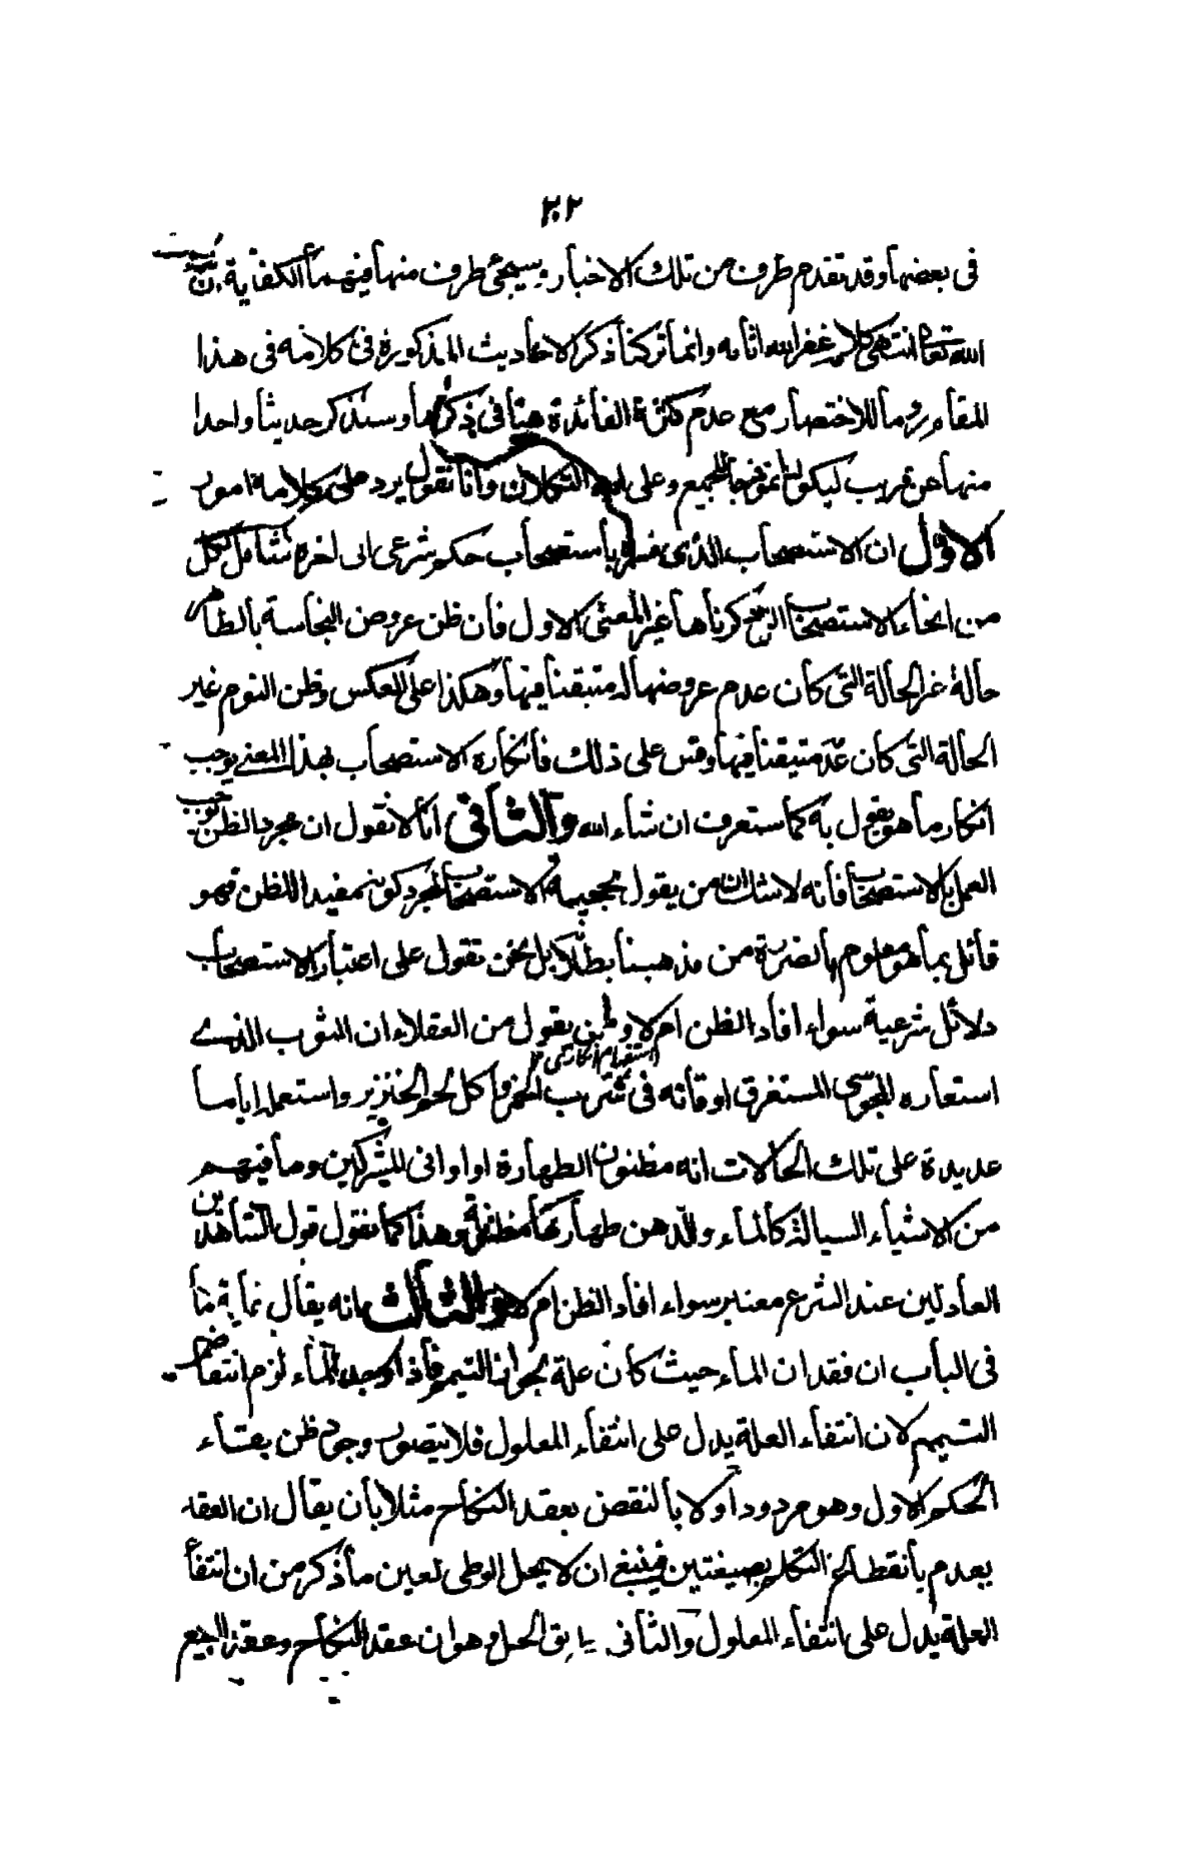 ٢٠٢
فى بعضها وقد تقدم طرف من تلك الاخبار وسيجئ طرف منها فيهما الكفاية
الله تعالى انتهى كلامه غفر الله اثامه وانما تركنا ذكر الاحاديث المذكورة فى كلامه فى هذا
المقام روما للاختصار مع عدم كثرة الفائدة هنا فى ذكرها وسنذكر حديثا واحدا
منها عن قريب ليكون انموذجا للجميع وعلى الله التكلان وانا نقول يرد على كلامه امور
الاول ان الاستصحاب الذى فسره باستصحاب حكم شرعى الى اخره شامل لكل
من انحاء الاستصحاب الذى ذكرناها غير المعنى الاول فان ظن عروض النجاسة بالطاهر
حالة غير الحالة التى كان عدم عروضها له متيقنا فيها وهكذا على العكس وظن النوم غير
الحالة التى كان عدمه متيقنا فيها وقس على ذلك فانكاره الاستصحاب بهذا المعنى يوجب
انكار ما هو يقول به كما ستعرف ان شاء الله والثانى انا لا نقول ان مجرد الظن يوجب
العمل بالاستصحاب فانه لا شك ان من يقول بحجية الاستصحاب لمجرد كونه مفيدا للظن فهو
قائل بما هو معلوم بالضرورة من مذهبنا بطلانه بل نحن نقول على اعتبار الاستصحاب
دلائل شرعية سواء افاد الظن ام لا ومن يقول من العقلاء ان الثوب الذى
استفهام انكارى
استعاره المجوسى المستغرق اوقاته فى شرب الخمر واكل لحم الخنزير واستعمله اياما
عديدة على تلك الحالات انه مظنون الطهارة او اوانى المشركين وما فيهم
من الاشياء السيالة كالماء والدهن طهارتها مظنونة وهذا كما نقول قول الشاهدين
العادلين عند الشرع معتبر سواء افاد الظن ام لا والثالث انه يقال نهاية ما
فى الباب ان فقدان الماء حيث كان علة لجواز التيمم فاذا وجد الماء لزم انتقاض
التيمم لان انتفاء العلة يدل على انتفاء المعلول فلا يتصور وجود ظن بقاء
الحكم الاول وهو مردود اولا بالنقض بعقد النكاح مثلا بان يقال ان العقد
ينعدم بانقطاع التكلم بصيغتين فينبغى ان لا يحل الوطى لعين ما ذكر من ان انتفاء
العلة يدل على انتفاء المعلول والثانى بالحل وهو ان عقد النكاح وعقد البيع